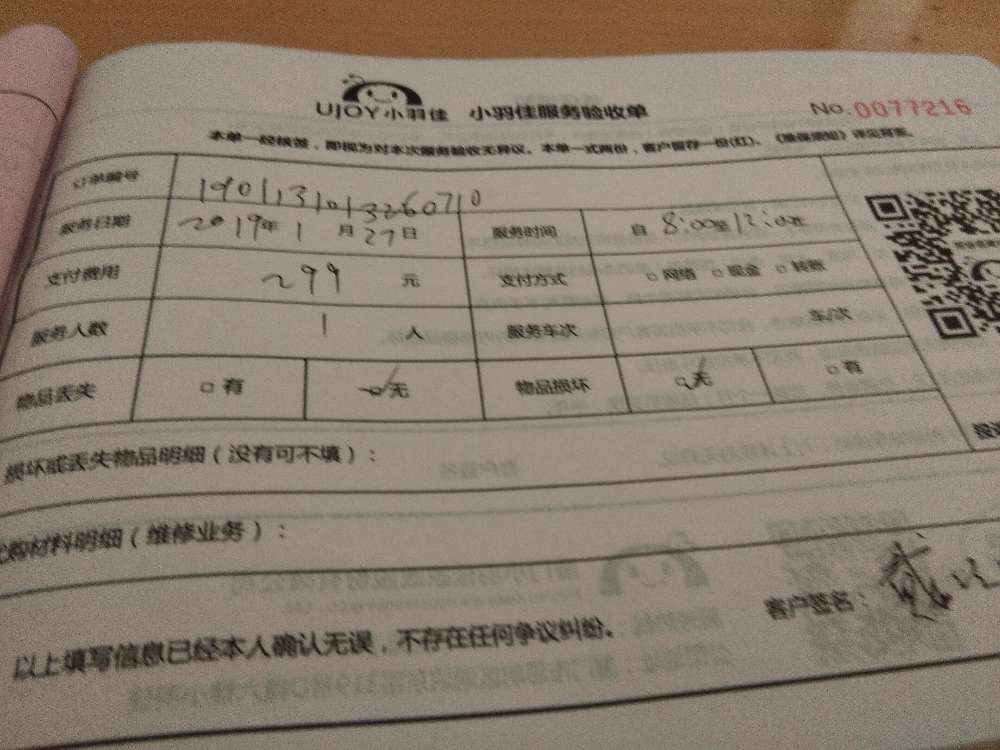 UJOY小羽佳 小羽佳服务验收单 No.0077216
本单一经核签，即视为对本次服务验收无异议。本单一式两份，客户留存一份(红)。《维保须知》详见背面。
订单编号 1901131013260710
服务日期 2019年1月27日 服务时间 自8:00至12:00止
支付费用 299元 支付方式 □网络 □现金 □转账
服务人数 1人 服务车次 车/次
物品丢失 □有 □无 物品损坏 □无 □有
损坏或丢失物品明细（没有可不填）：
购材料明细（维修业务）：
以上填写信息已经本人确认无误，不存在任何争议纠纷。 客户签名：